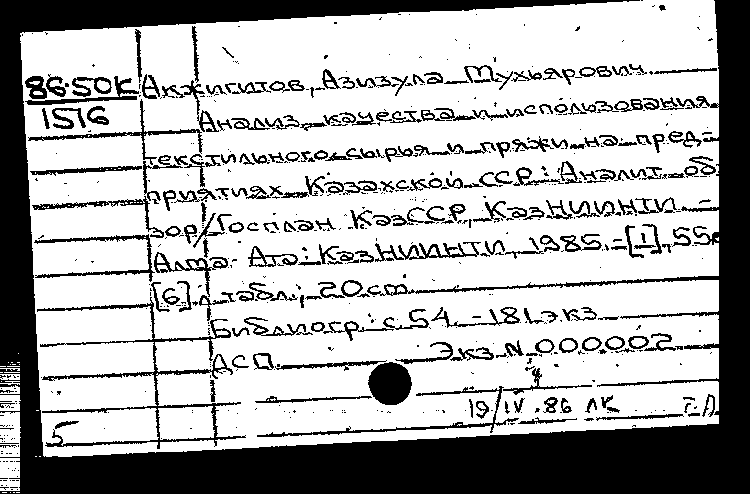 86-50К Акжигитов, Азизула Мухьярович
1516 Анализ качества и использования
текстильного сырья и пряжи на пред-
приятиях Казахской ССР: Аналит. об-
зор/Госплан КазССР, КазНИИНТИ. -
Алма-Ата: КазНИИНТИ, 1985. - [1], 55с.
[6] л. табл.; 20 см.
Библиогр.: с. 54. - 181 экз.
ДСП. Экз. N 000002
19/IV.86 ЛК Т.П
5